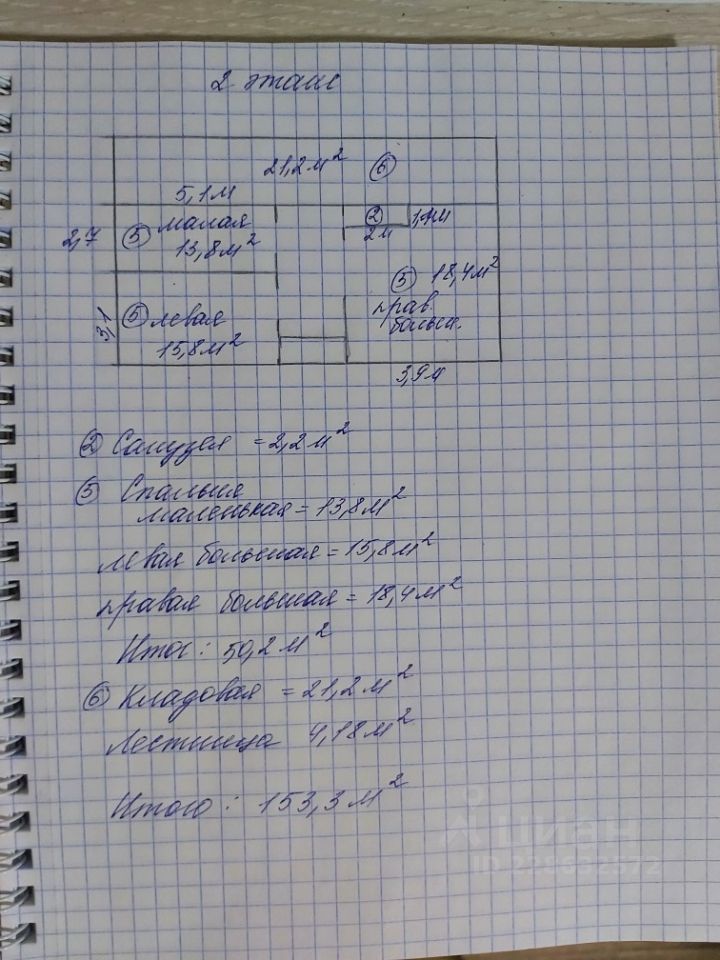 2 этаж
21,2 м²
⑥
5,1 м
2,7
⑤ малая
13,8 м²
② 1,1м
2 м
⑤ 18,4 м²
прав.
больш.
3,1
⑤ левая
15,8 м²
3,9 м
② Санузел = 2,2 м²
⑤ Спальня
маленькая = 13,8 м²
левая большая = 15,8 м²
правая большая = 18,4 м²
Итог: 50,2 м²
⑥ Кладовая = 21,2 м²
Лестница 4,18 м²
Итого: 153,3 м²
ЦИАН
ID 228632572